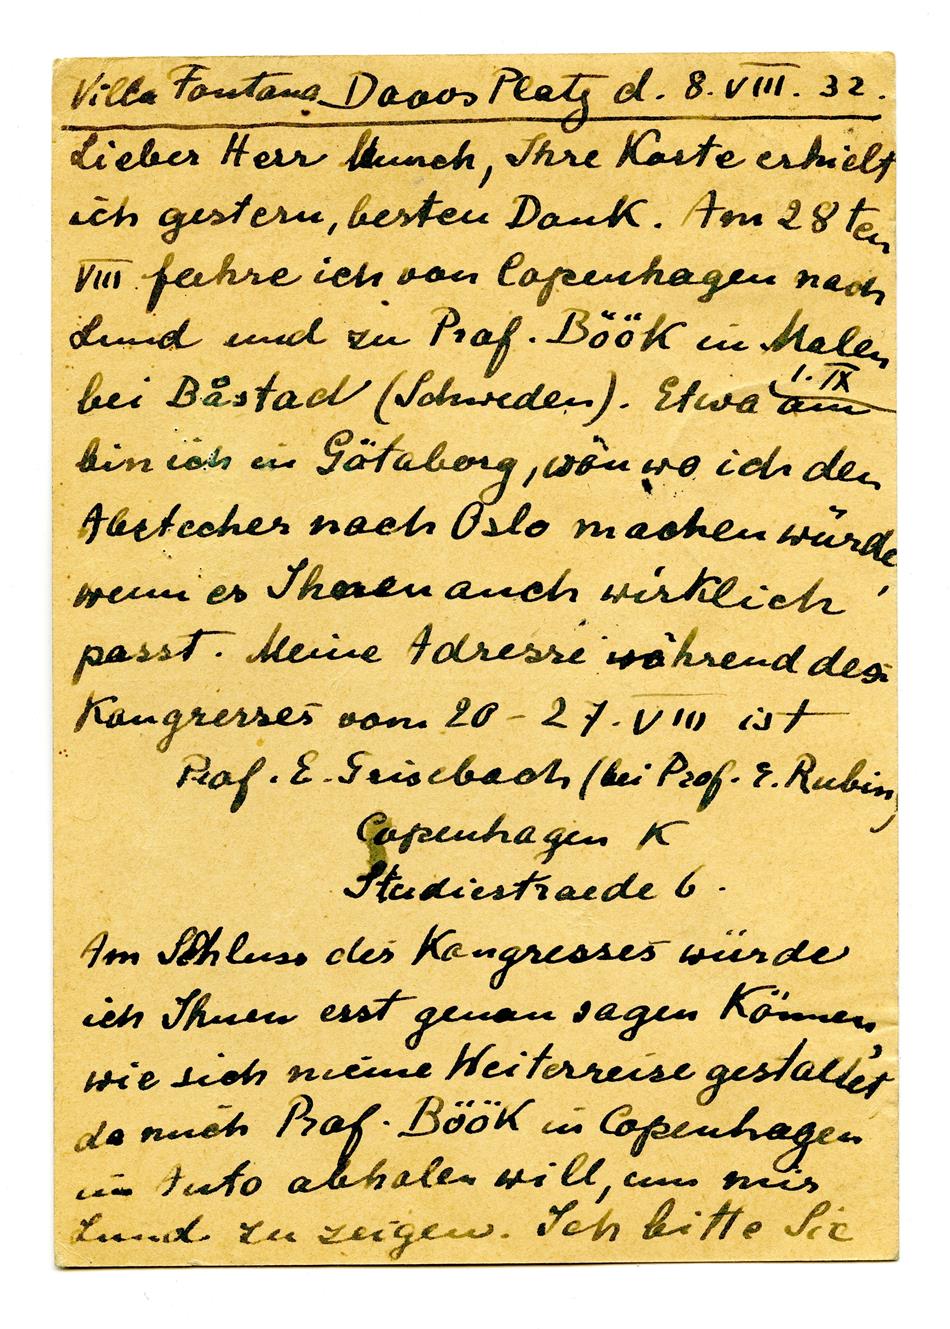 Villa Fontana Davos Platz d. 8. VIII. 32.
Lieber Herr Munch, Ihre Karte erhielt
ich gestern, besten Dank. Am 28ten
VIII fahre ich von Copenhagen nach
Lund und zu Prof. BÖÖK in Malen
bei Båstad (Schweden). Etwa am 1. IX
bin ich in Götaborg, von wo ich den
Abstecher nach Oslo machen würde,
wenn es Ihnen auch wirklich
passt. Meine Adresse während des
Kongresses vom 20 - 27. VIII ist
Prof. E. Grisebach (bei Prof. E. Rubin)
Copenhagen K
Studiestraede 6.
Am Schluss des Kongresses würde
ich Ihnen erst genau sagen können,
wie sich meine Weiterreise gestaltet,
da mich Prof. BÖÖK in Copenhagen
im Auto abholen will, um mir
Lund zu zeigen. Ich bitte Sie